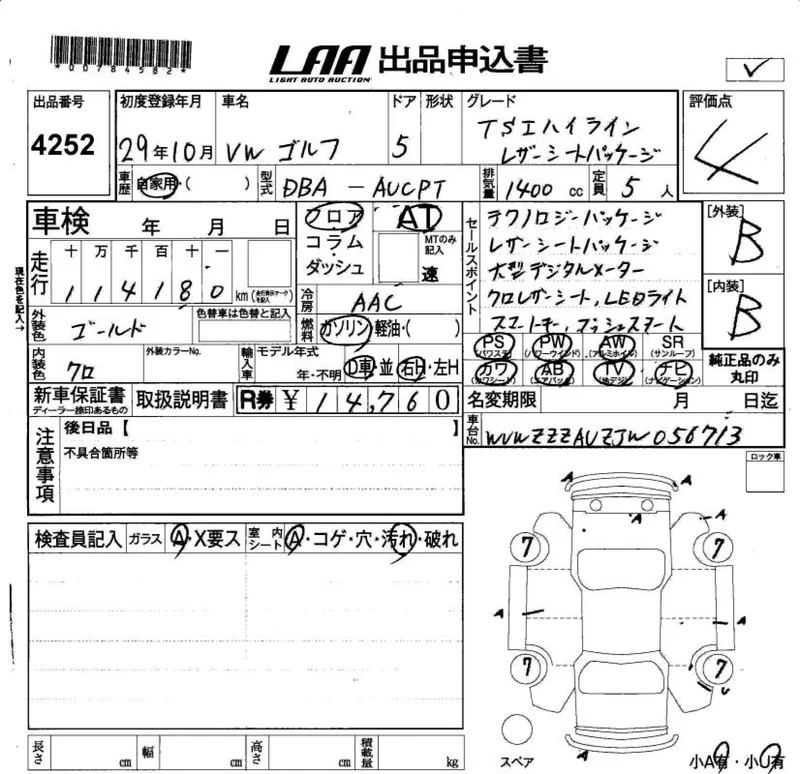 *00784582*
LAA 出品申込書
LIGHT AUTO AUCTION
✓
出品番号
4252
初度登録年月
29年10月
車名
VW ゴルフ
ドア
5
形状
グレード
TSIハイライン
レザーシートパッケージ
評価点
4
車歴
自家用・( )
型式
DBA - AUCPT
排気量
1400 cc
定員
5 人
車検 年 月 日
走行
十 万 千 百 十 一
1 1 4 1 8 0 km
(走行表示マークを記入)
現在色を記入→
外装色
ゴールド
色替車は色替と記入
内装色
クロ
外装カラーNo.
フロア
コラム
ダッシュ
AT
MTのみ記入
速
冷房
AAC
燃料
ガソリン・軽油・( )
輸入車
モデル年式
年・不明
D車・並
右H・左H
セールスポイント
テクノロジーパッケージ
レザーシートパッケージ
大型デジタルメーター
クロレザーシート、LEDライト
スマートキー、プッシュスタート
[外装]
B
[内装]
B
PS (パワステ)
PW (パワーウインド)
AW (アルミホイル)
SR (サンルーフ)
カワ (カワシート)
AB (エアバッグ)
TV (地デジ)
ナビ (ナビゲーション)
純正品のみ丸印
新車保証書
ディーラー捺印あるもの
取扱説明書
R券 ¥ 14,760
名変期限 月 日迄
車台No.
WVWZZZAUZJW056713
注意事項
後日品【 】
不具合箇所等
ロック車
検査員記入
ガラス
A・X要ス
室内シート
A・コゲ・穴・汚れ・破れ
A
A
A
A
7
7
A
A
7
7
U
A
スペア
小A有・小U有
長さ cm
幅 cm
高さ cm
積載量 kg